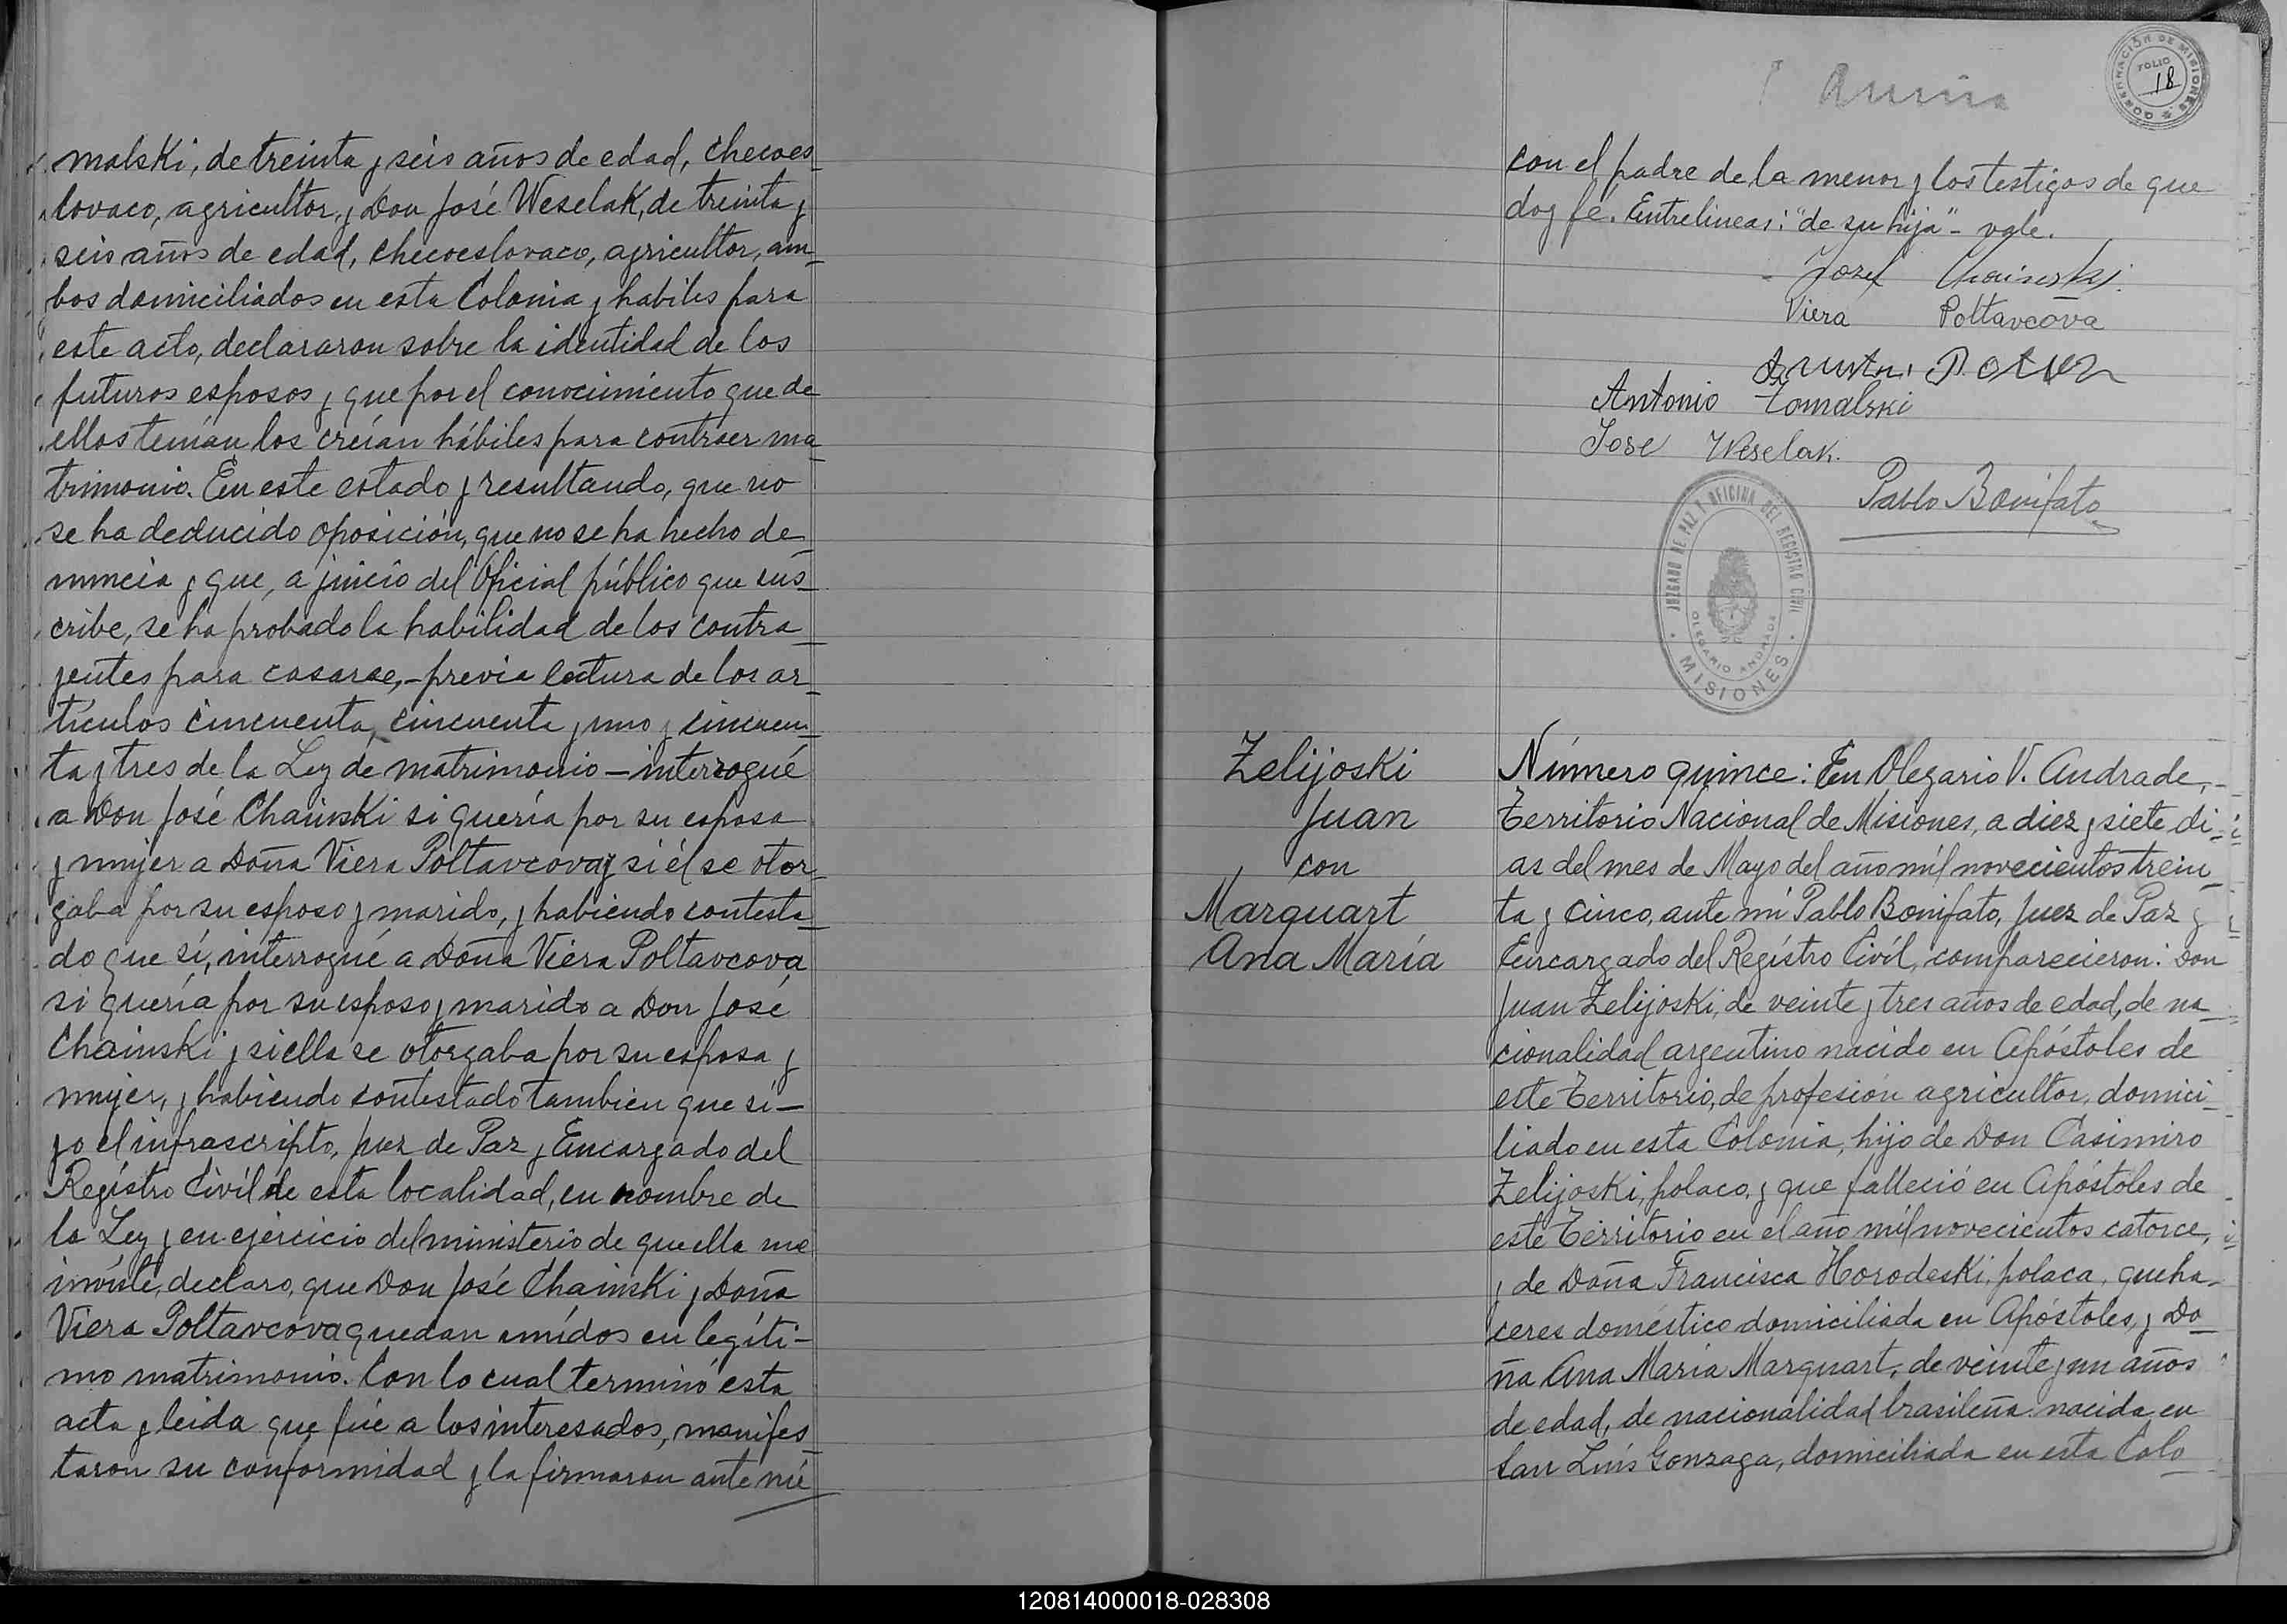 malski, de treinta y seis años de edad, checoes_
lovaco, agricultor, y Don José Weselak, de treinta y
seis años de edad, checoeslovaco, agricultor, am_
bos domiciliados en esta Colonia y habiles para
este acto, declararon sobre la identidad de los
futuros esposos y que por el conocimiento que de
ellos tenían los creían hábiles para contraer ma_
trimonio. En este estado y resultando, que no
se ha deducido oposición, que no se ha hecho de_
nuncia y que, a juicio del Oficial público que sus_
cribe, se ha probado la habilidad de los contra_
yentes para casarse,-previa lectura de los ar_
tículos cincuenta, cincuenta y uno y cincuen_
ta y tres de la Ley de matrimonio - interrogué
a Don José Chainski si quería por su esposa
y mujer a Doña Viera Poltavcova y si él se otor_
gaba por su esposo y marido, y habiendo contesta_
do que sí, interrogué a Doña Viera Poltavcova
si quería por su esposo y marido a Don José
Chainski y si ella se otorgaba por su esposa y
mujer, y habiendo contestado tambien que sí -
yo el infrascripto, Juez de Paz y Encargado del
Regístro Civíl de esta localidad, en nombre de
la Ley y en ejercicio del ministerio de que ella me
inviste, declaro, que Don José Chainski y Doña
Viera Poltavcova quedan unídos en legíti-
mo matrimonio. Con lo cual terminó esta
acta y leida que fué a los interesados, manifes_
taron su conformidad y la firmaron ante mí
GOBERNACIÓN DE MISIONES
FOLIO
18
con el padre de la menor y los testigos de que
doy fé. Entrelineas: "de su hija" - vale.
Jozef Chainski.
Viera Poltavcova
Antonio Tomalski
Jose Weselak.
Pablo Bonifato
JUZGADO DE PAZ Y OFICINA DEL REGISTRO CIVIL
OLEGARIO ANDRADE
MISIONES
Zelijoski
Juan
con
Marquart
Ana María
Número quince: En Olegario V. Andrade,
Territorio Nacional de Misiones, a diez y siete di_
as del mes de Mayo del año mil novecientos trein_
ta y cinco, ante mí Pablo Bonifato, Juez de Paz y
Encargado del Regístro Civíl, comparecieron: Don
Juan Zelijoski, de veinte y tres años de edad, de na_
cionalidad argentino nacido en Apóstoles de
este Territorio, de profesión agricultor, domici_
liado en esta Colonia, hijo de Don Casimiro
Zelijoski, polaco, y que falleció en Apóstoles de
este Territorio en el año mil novecientos catorce,
y de Doña Francisca Horodeski, polaca, queha_
ceres doméstico domiciliada en Apóstoles, y Do_
ña Ana María Marquart, de veinte y un años
de edad, de nacionalidad brasileña nacida en
San Luís Gonzaga, domiciliada en esta Colo_
120814000018-028308